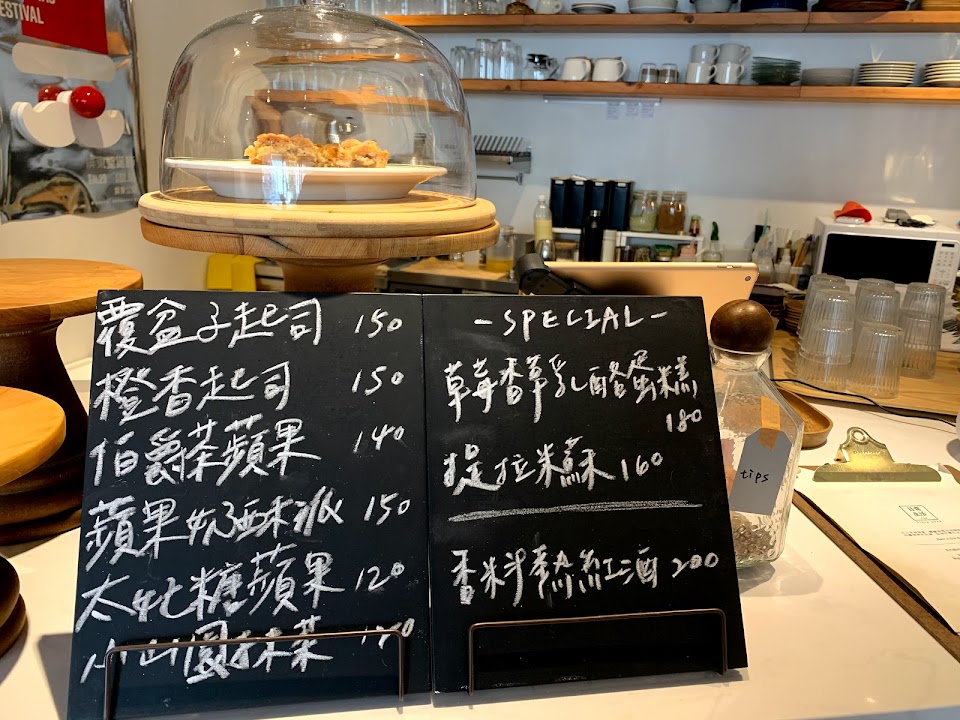 ESTIVAL
覆盆子起司 150
橙香起司 150
伯爵茶蘋果 140
蘋果奶酥派 150
太妃糖蘋果 120
小山圓抹茶
-SPECIAL-
草莓香草乳酪蛋糕
180
提拉米蘇 160
香料熱紅酒 200
tips